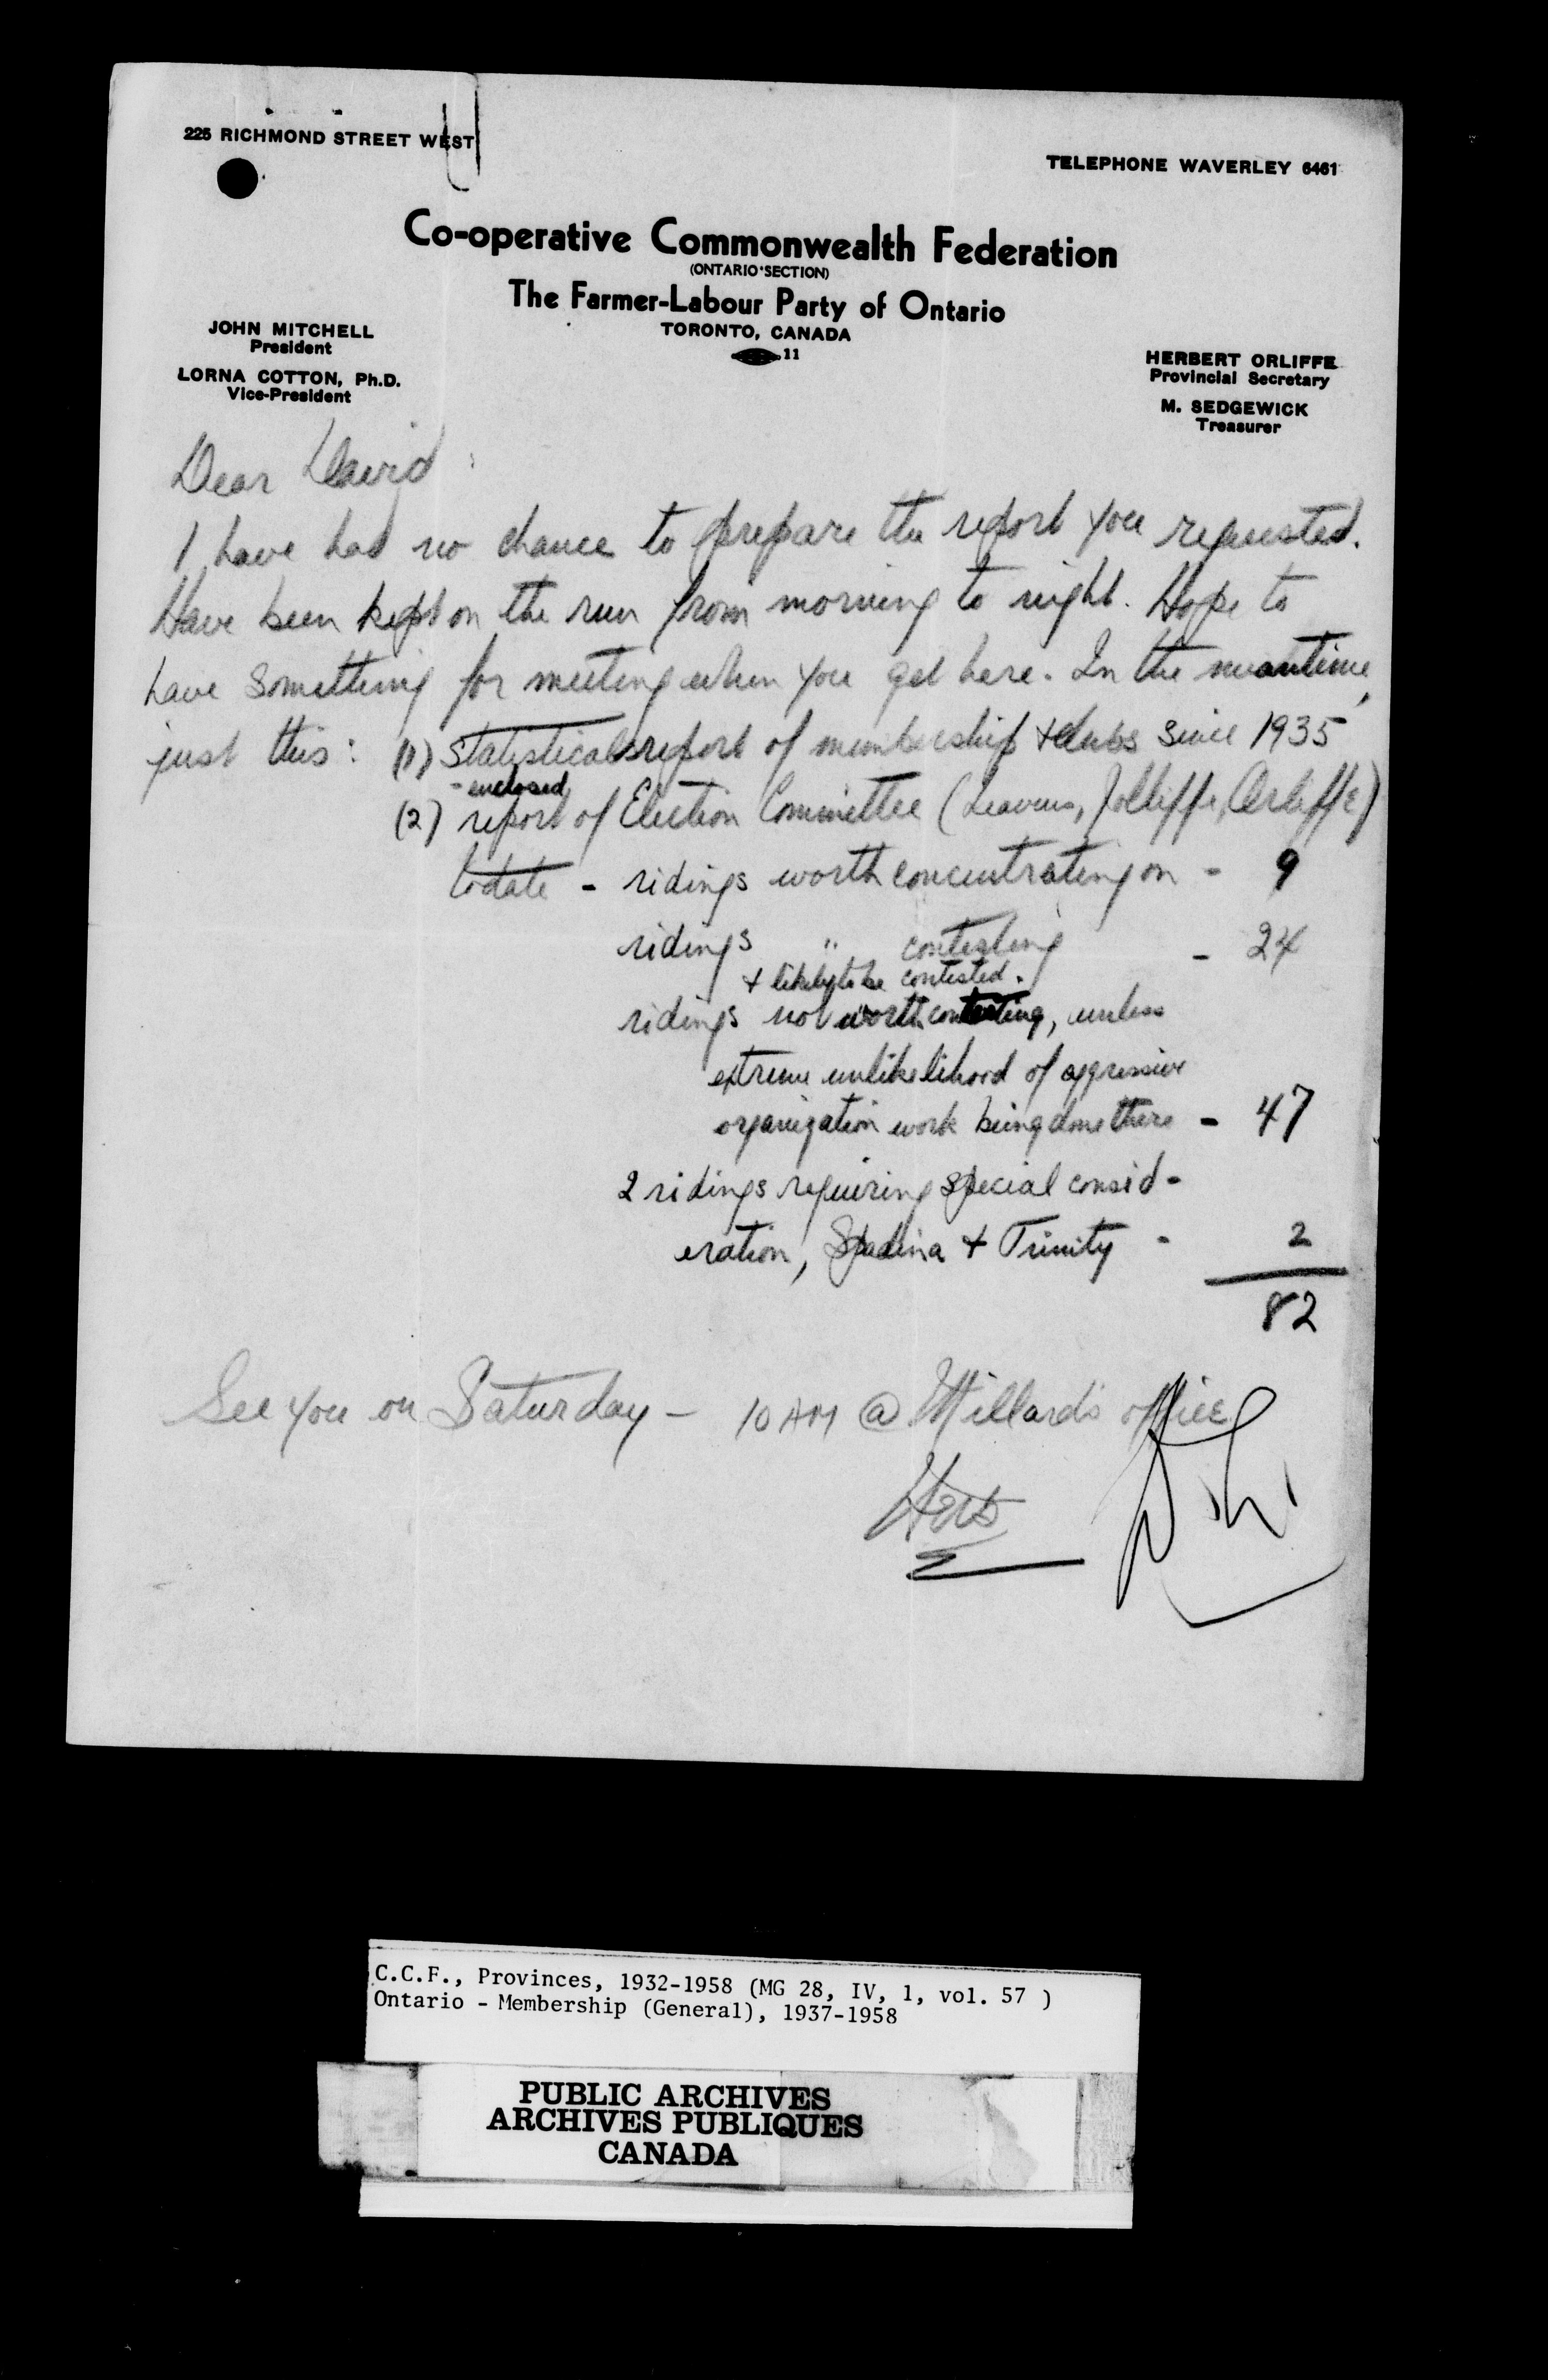 225 RICHMOND STREET WEST
TELEPHONE WAVERLEY 6461
Co-operative Commonwealth Federation
(ONTARIO SECTION)
The Farmer-Labour Party of Ontario
TORONTO, CANADA
11
JOHN MITCHELL
President
LORNA COTTON, Ph.D.
Vice-President
HERBERT ORLIFFE
Provincial Secretary
M. SEDGEWICK
Treasurer
Dear David:
I have had no chance to prepare the report you requested.
Have been kept on the run from morning to night. Hope to
have something for meeting when you get here. In the meantime,
just this: (1) Statistical report of membership + clubs since 1935
- enclosed
(2) report of Election Committee (Leavens, Jolliffe, Orliffe)
to date - ridings worth concentrating on - 9
ridings " contesting - 24
+ likely to be contested.
ridings not worth contesting, unless
extreme unlikelihood of aggressive
organization work being done there - 47
2 ridings requiring special consid-
eration, Spadina + Trinity - 2
82
See you on Saturday - 10 AM @ Millard's office
Herb
C.C.F., Provinces, 1932-1958 (MG 28, IV, 1, vol. 57 )
Ontario - Membership (General), 1937-1958
PUBLIC ARCHIVES
ARCHIVES PUBLIQUES
CANADA